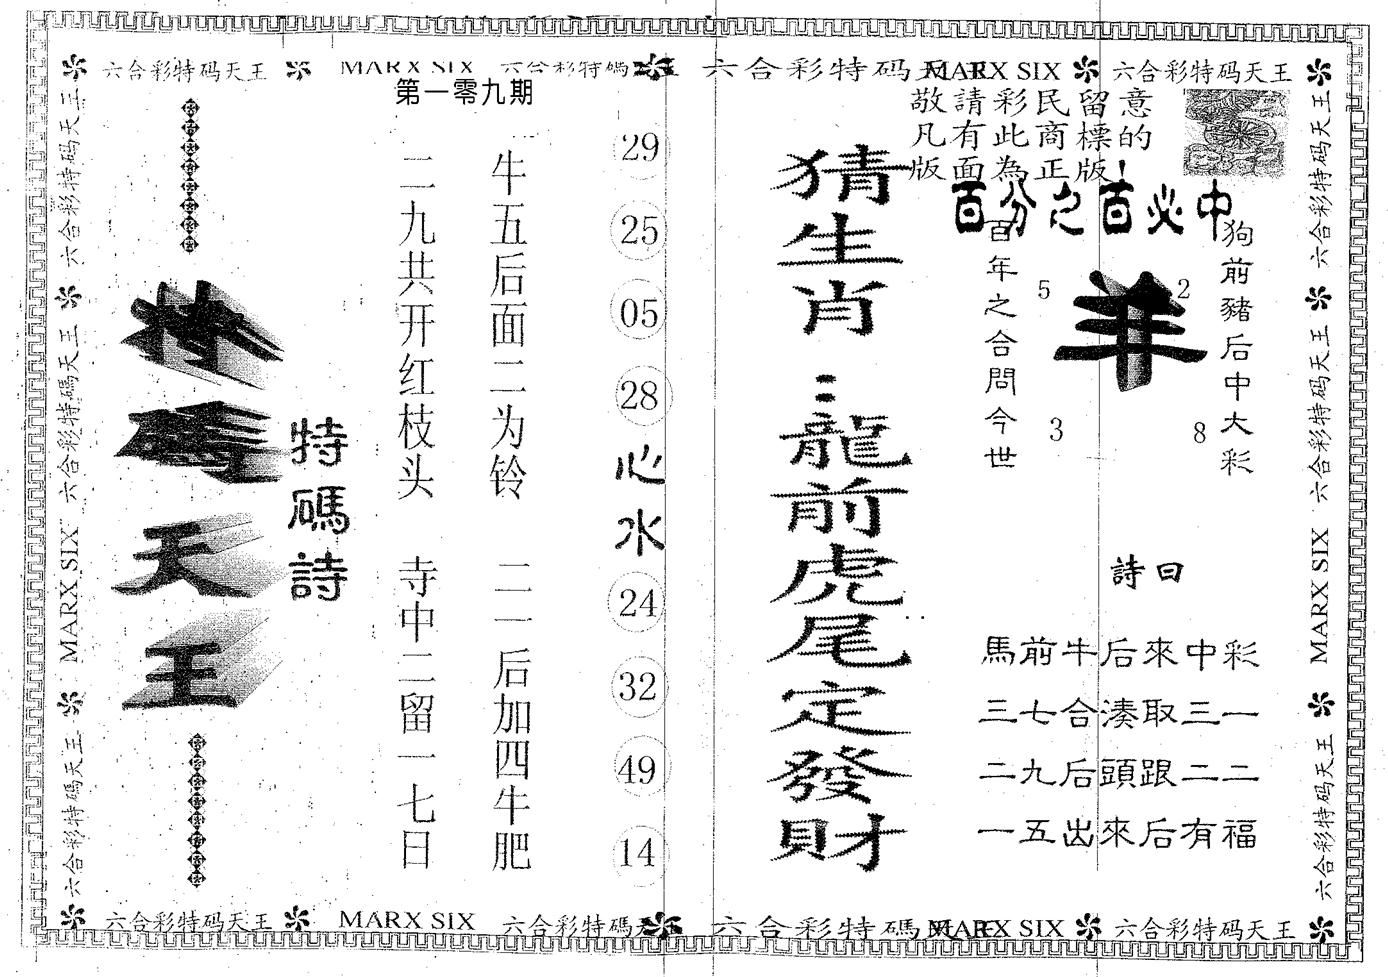 六合彩特码天王 MARX SIX 六合彩特码天王 六合彩特码天王 MARX SIX 六合彩特码天王
第一零九期
敬請彩民留意
凡有此商標的
版面為正版!
百分之百必中
特碼天王
特碼詩
二九共开红枝头
寺中二留一七日
牛五后面二为铃
二一后加四牛肥
29
25
05
28
心水
24
32
49
14
猜生肖:龍前虎尾定發財
百年之合問今世
5
2
羊
3
8
狗前豬后中大彩
詩曰
馬前牛后來中彩
三七合湊取三一
二九后頭跟二二
一五出來后有福
六合彩特码天王
六合彩特碼天王
MARX SIX
六合彩特码天王
六合彩特码天王
六合彩特码天王
MARX SIX
六合彩特码天王
六合彩特码天王 MARX SIX 六合彩特碼天王 六合彩特碼天王 MARX SIX 六合彩特码天王